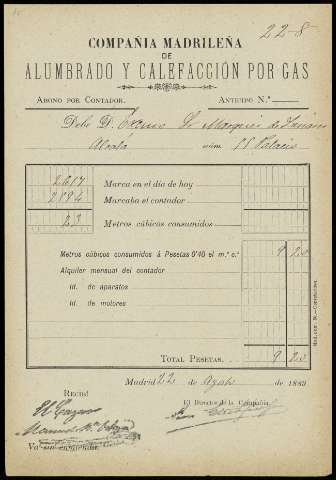 22-8
COMPAÑIA MADRILEÑA
DE
ALUMBRADO Y CALEFACCIÓN POR GAS
ABONO POR CONTADOR. ANTIGUO N.º
Debe D. Excmo Sr Marqués de
Alcala núm. Palacio
2217 Marca en el día de hoy
2194 Marcaba el contador
23 Metros cúbicos consumidos
Metros cúbicos consumidos á Pesetas 0'40 el m.³ c.º 9 20
Alquiler mensual del contador
Id. de aparatos
Id. de motores
TOTAL PESETAS. 9 20
Madrid 22 de Agosto de 1883
RECIBÍ El Director de la Compañía,
El
Manuel